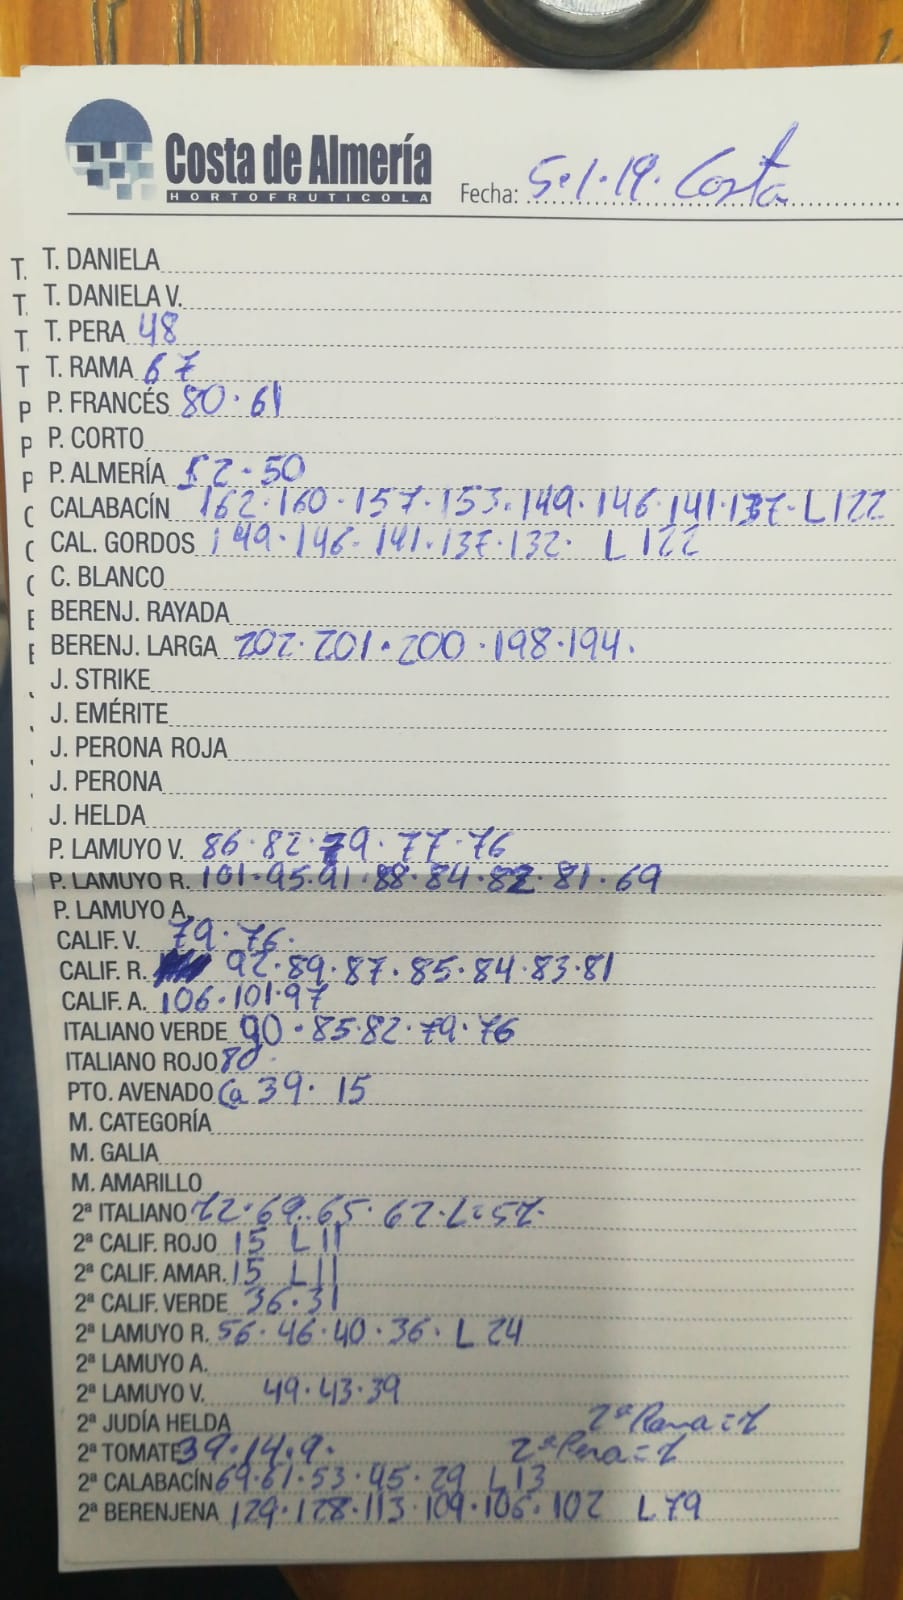 Costa de Almería
HORTOFRUTICOLA
Fecha: 5.1.19. Costa
T. DANIELA
T. DANIELA V.
T. PERA 48
T. RAMA 67
P. FRANCÉS 80.61
P. CORTO
P. ALMERÍA 52.50
CALABACÍN 162.160.157.153.149.146.141.137.L122
CAL. GORDOS 149.146.141.137.132. L122
C. BLANCO
BERENJ. RAYADA
BERENJ. LARGA 202.201.200.198.194.
J. STRIKE
J. EMÉRITE
J. PERONA ROJA
J. PERONA
J. HELDA
P. LAMUYO V. 86.82.79.77.76
P. LAMUYO R. 101.95.91.88.84.82.81.69
P. LAMUYO A.
CALIF. V. 79.76.
CALIF. R. 92.89.87.85.84.83.81
CALIF. A. 106.101.97
ITALIANO VERDE 90.85.82.79.76
ITALIANO ROJO 80.
PTO. AVENADO Ca 39. 15
M. CATEGORÍA
M. GALIA
M. AMARILLO
2ª ITALIANO 72.69.65.62.L=57.
2ª CALIF. ROJO 15 L11
2ª CALIF. AMAR. 15 L11
2ª CALIF. VERDE 36.31
2ª LAMUYO R. 56.46.40.36. L24
2ª LAMUYO A.
2ª LAMUYO V. 49.43.39
2ª JUDÍA HELDA 2ª Rama =
2ª TOMATE 39.14.9. 2ª Pera =
2ª CALABACÍN 69.61.53.45.29 L13
2ª BERENJENA 129.128.113.109.106.102 L79